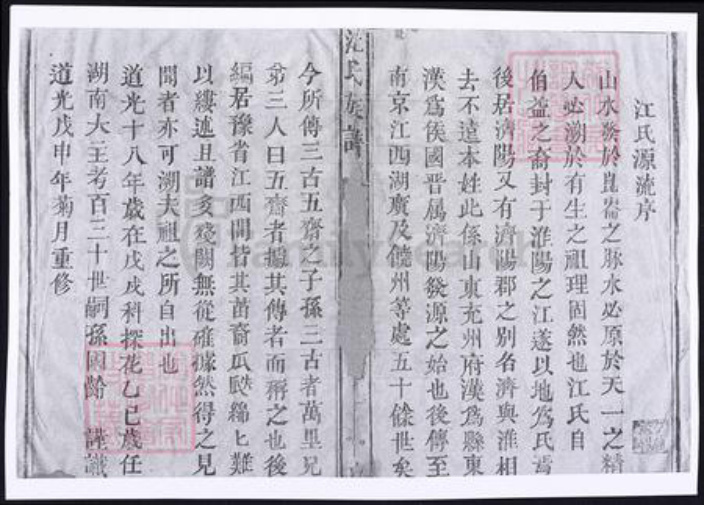 江氏源流序
山水發於崑崙之脉水必原於天一之精
人必溯於有生之祖理固然也江氏自
伯益之裔封于淮陽之江遂以地為氏焉
後居濟陽又有濟陽郡之別名濟與淮相
去不遠本姓此係山東兖州府漢為縣東
漢為侯國晋属濟陽發源之始也後傳至
南京江西湖廣及饒州等處五十餘世矣
江氏族譜
今所傳三古五齋之子孫三古者萬里兄
弟三人曰五齋者據其傳者而稱之也後
編居豫省江西間皆其苗裔瓜瓞綿匕難
以縷述且譜多殘闕無從確據然得之見
聞者亦可溯夫祖之所自出也
道光十八年歲在戊戌科探花乙巳歲任
湖南大主考百三十世嗣孫國齡 謹識
道光戊申年菊月重修
FamilySearch